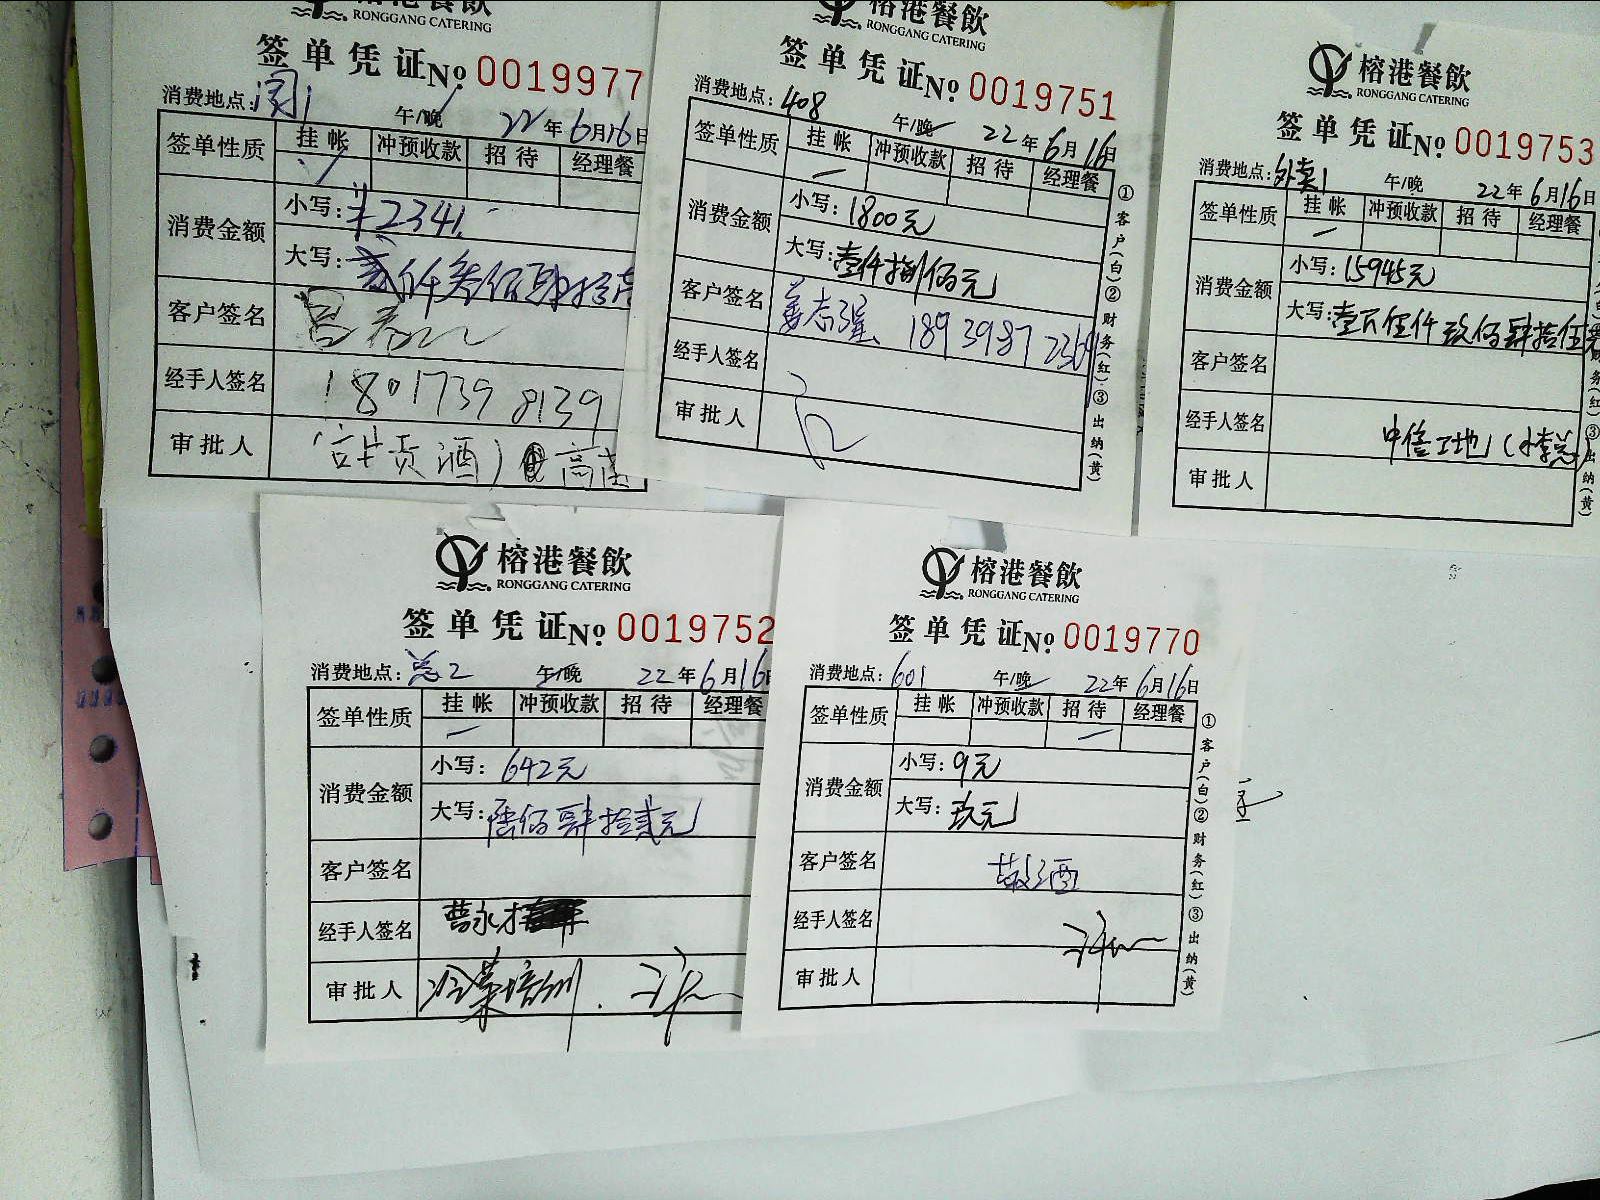 榕港餐飲
RONGGANG CATERING
签单凭证 No 0019977
消费地点:
午/晚 22年6月16日
签单性质 挂帐 冲预收款 招待 经理餐
消费金额
小写: ¥2341.
大写: 贰仟叁佰肆拾
客户签名
经手人签名 18017398139
审批人
榕港餐飲
RONGGANG CATERING
签单凭证 No 0019751
消费地点: 408
午/晚 22年6月16日
签单性质 挂帐 冲预收款 招待 经理餐
消费金额
小写: 1800元
大写: 壹仟捌佰元
客户签名 姜志强
经手人签名
审批人
①客户(白)②财务(红)③出纳(黄)
榕港餐飲
RONGGANG CATERING
签单凭证 No 0019753
消费地点: 外卖1
午/晚 22年6月16日
签单性质 挂帐 冲预收款 招待 经理餐
消费金额
小写: 15945元
大写: 壹万伍仟玖佰肆拾伍元
客户签名
经手人签名 中信工地(小李总)
审批人
榕港餐飲
RONGGANG CATERING
签单凭证 No 0019752
消费地点: 总2
午/晚 22年6月16日
签单性质 挂帐 冲预收款 招待 经理餐
消费金额
小写: 642元
大写: 陆佰肆拾贰元
客户签名
经手人签名 曹永才
审批人 冷菜培训.
榕港餐飲
RONGGANG CATERING
签单凭证 No 0019770
消费地点: 601
午/晚 22年6月16日
签单性质 挂帐 冲预收款 招待 经理餐
消费金额
小写: 9元
大写: 玖元
客户签名 敬酒
经手人签名
审批人
①客户(白)②财务(红)③出纳(黄)